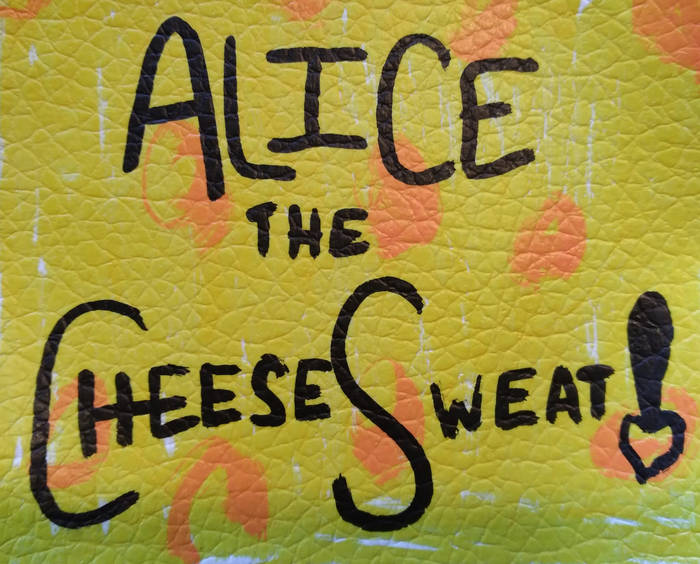 ALICE
THE
CHEESE SWEAT!